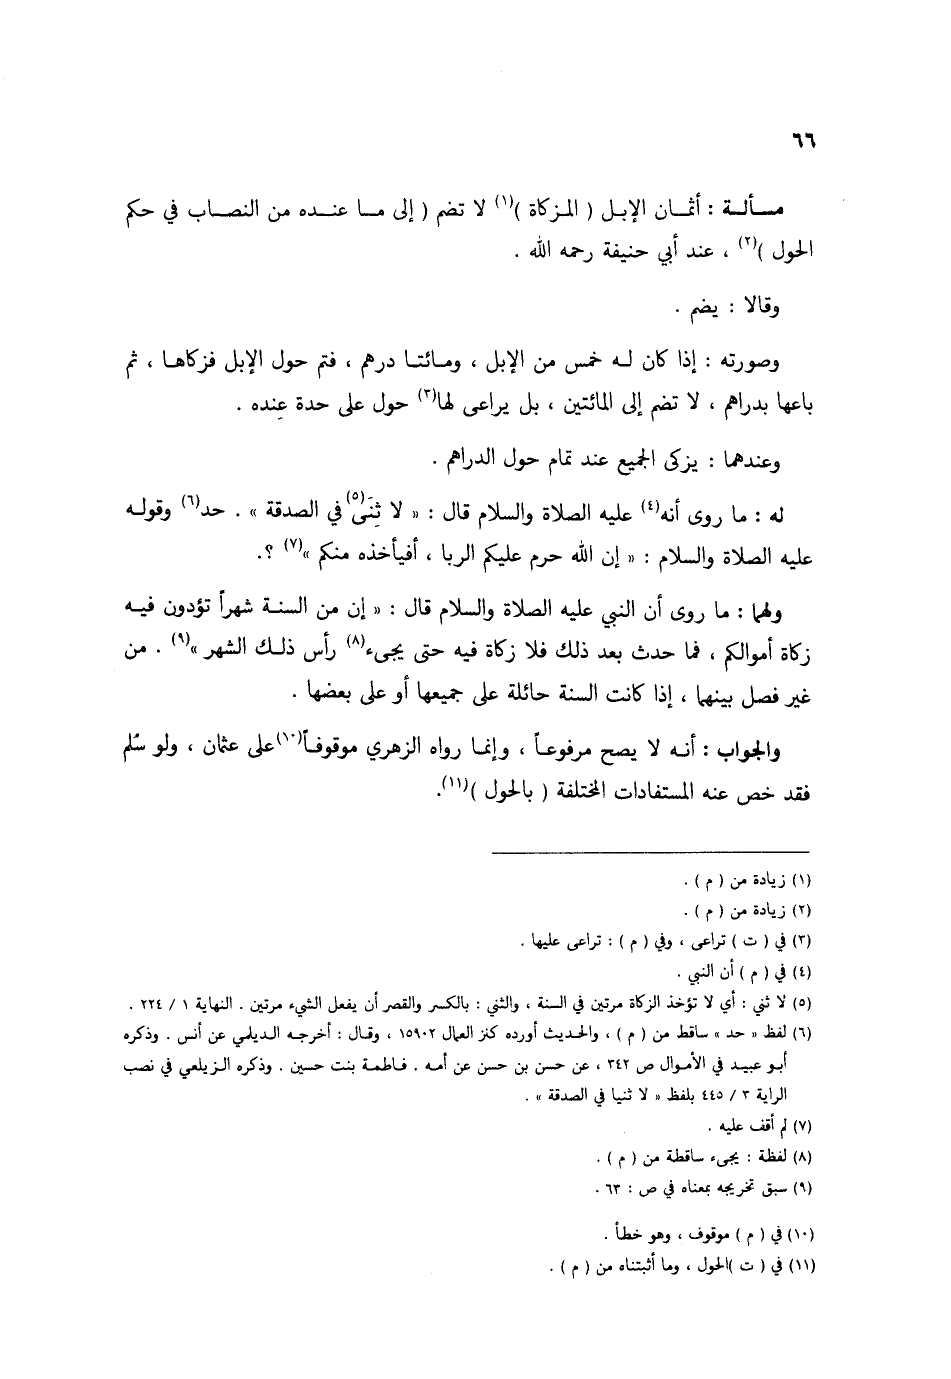 ٦٦
مسألة : أثمان الإبل ( المزكاة )(١) لا تضم ( إلى ما عنده من النصاب في حكم
الحول )(٢) ، عند أبي حنيفة رحمه الله .
وقالا : يضم .
وصورته : إذا كان له خمس من الإبل ، ومائتا درهم ، فتم حول الإبل فزكاها ، ثم
باعها بدراهم ، لا تضم إلى المائتين ، بل يراعى لها(٣) حول على حدة عنده .
وعندهما : يزكى الجميع عند تمام حول الدراهم .
له : ما روى أنه(٤) عليه الصلاة والسلام قال : « لا ثِنَىً(٥) في الصدقة » . حد(٦) وقوله
عليه الصلاة والسلام : « إن الله حرم عليكم الربا ، أفيأخذه منكم »(٧) ؟.
ولهما : ما روى أن النبي عليه الصلاة والسلام قال : « إن من السنة شهراً تؤدون فيه
زكاة أموالكم ، فما حدث بعد ذلك فلا زكاة فيه حتى يجيء(٨) رأس ذلك الشهر »(٩) . من
غير فصل بينهما ، إذا كانت السنة حائلة على جميعها أو على بعضها .
والجواب : أنه لا يصح مرفوعاً ، وإنما رواه الزهري موقوفاً(١٠)على عثمان ، ولو سُلم
فقد خص عنه المستفادات المختلفة ( بالحول )(١١).
(١) زيادة من ( م ) .
(٢) زيادة من ( م ) .
(٣) في ( ت ) تراعى ، وفي ( م ) : تراعى عليها .
(٤) في ( م ) أن النبي .
(٥) لا ثني : أي لا تؤخذ الزكاة مرتين في السنة ، والثني : بالكسر والقصر أن يفعل الشيء مرتين . النهاية ١ / ٢٢٤ .
(٦) لفظ « حد » ساقط من ( م ) ، والحديث أورده كنز العمال ١٥٩٠٢ ، وقال : أخرجه الديلمي عن أنس . وذكره
أبو عبيد في الأموال ص ٣٤٢ ، عن حسن بن حسن عن أمه . فاطمة بنت حسين . وذكره الزيلعي في نصب
الراية ٣ / ٤٤٥ بلفظ « لا ثنيا في الصدقة » .
(٧) لم أقف عليه .
(٨) لفظة : يجيء ساقطة من ( م ) .
(٩) سبق تخريجه بمعناه في ص : ٦٣ .
(١٠) في ( م ) موقوف ، وهو خطأ .
(١١) في ( ت )الحول ، وما أثبتناه من ( م ) .